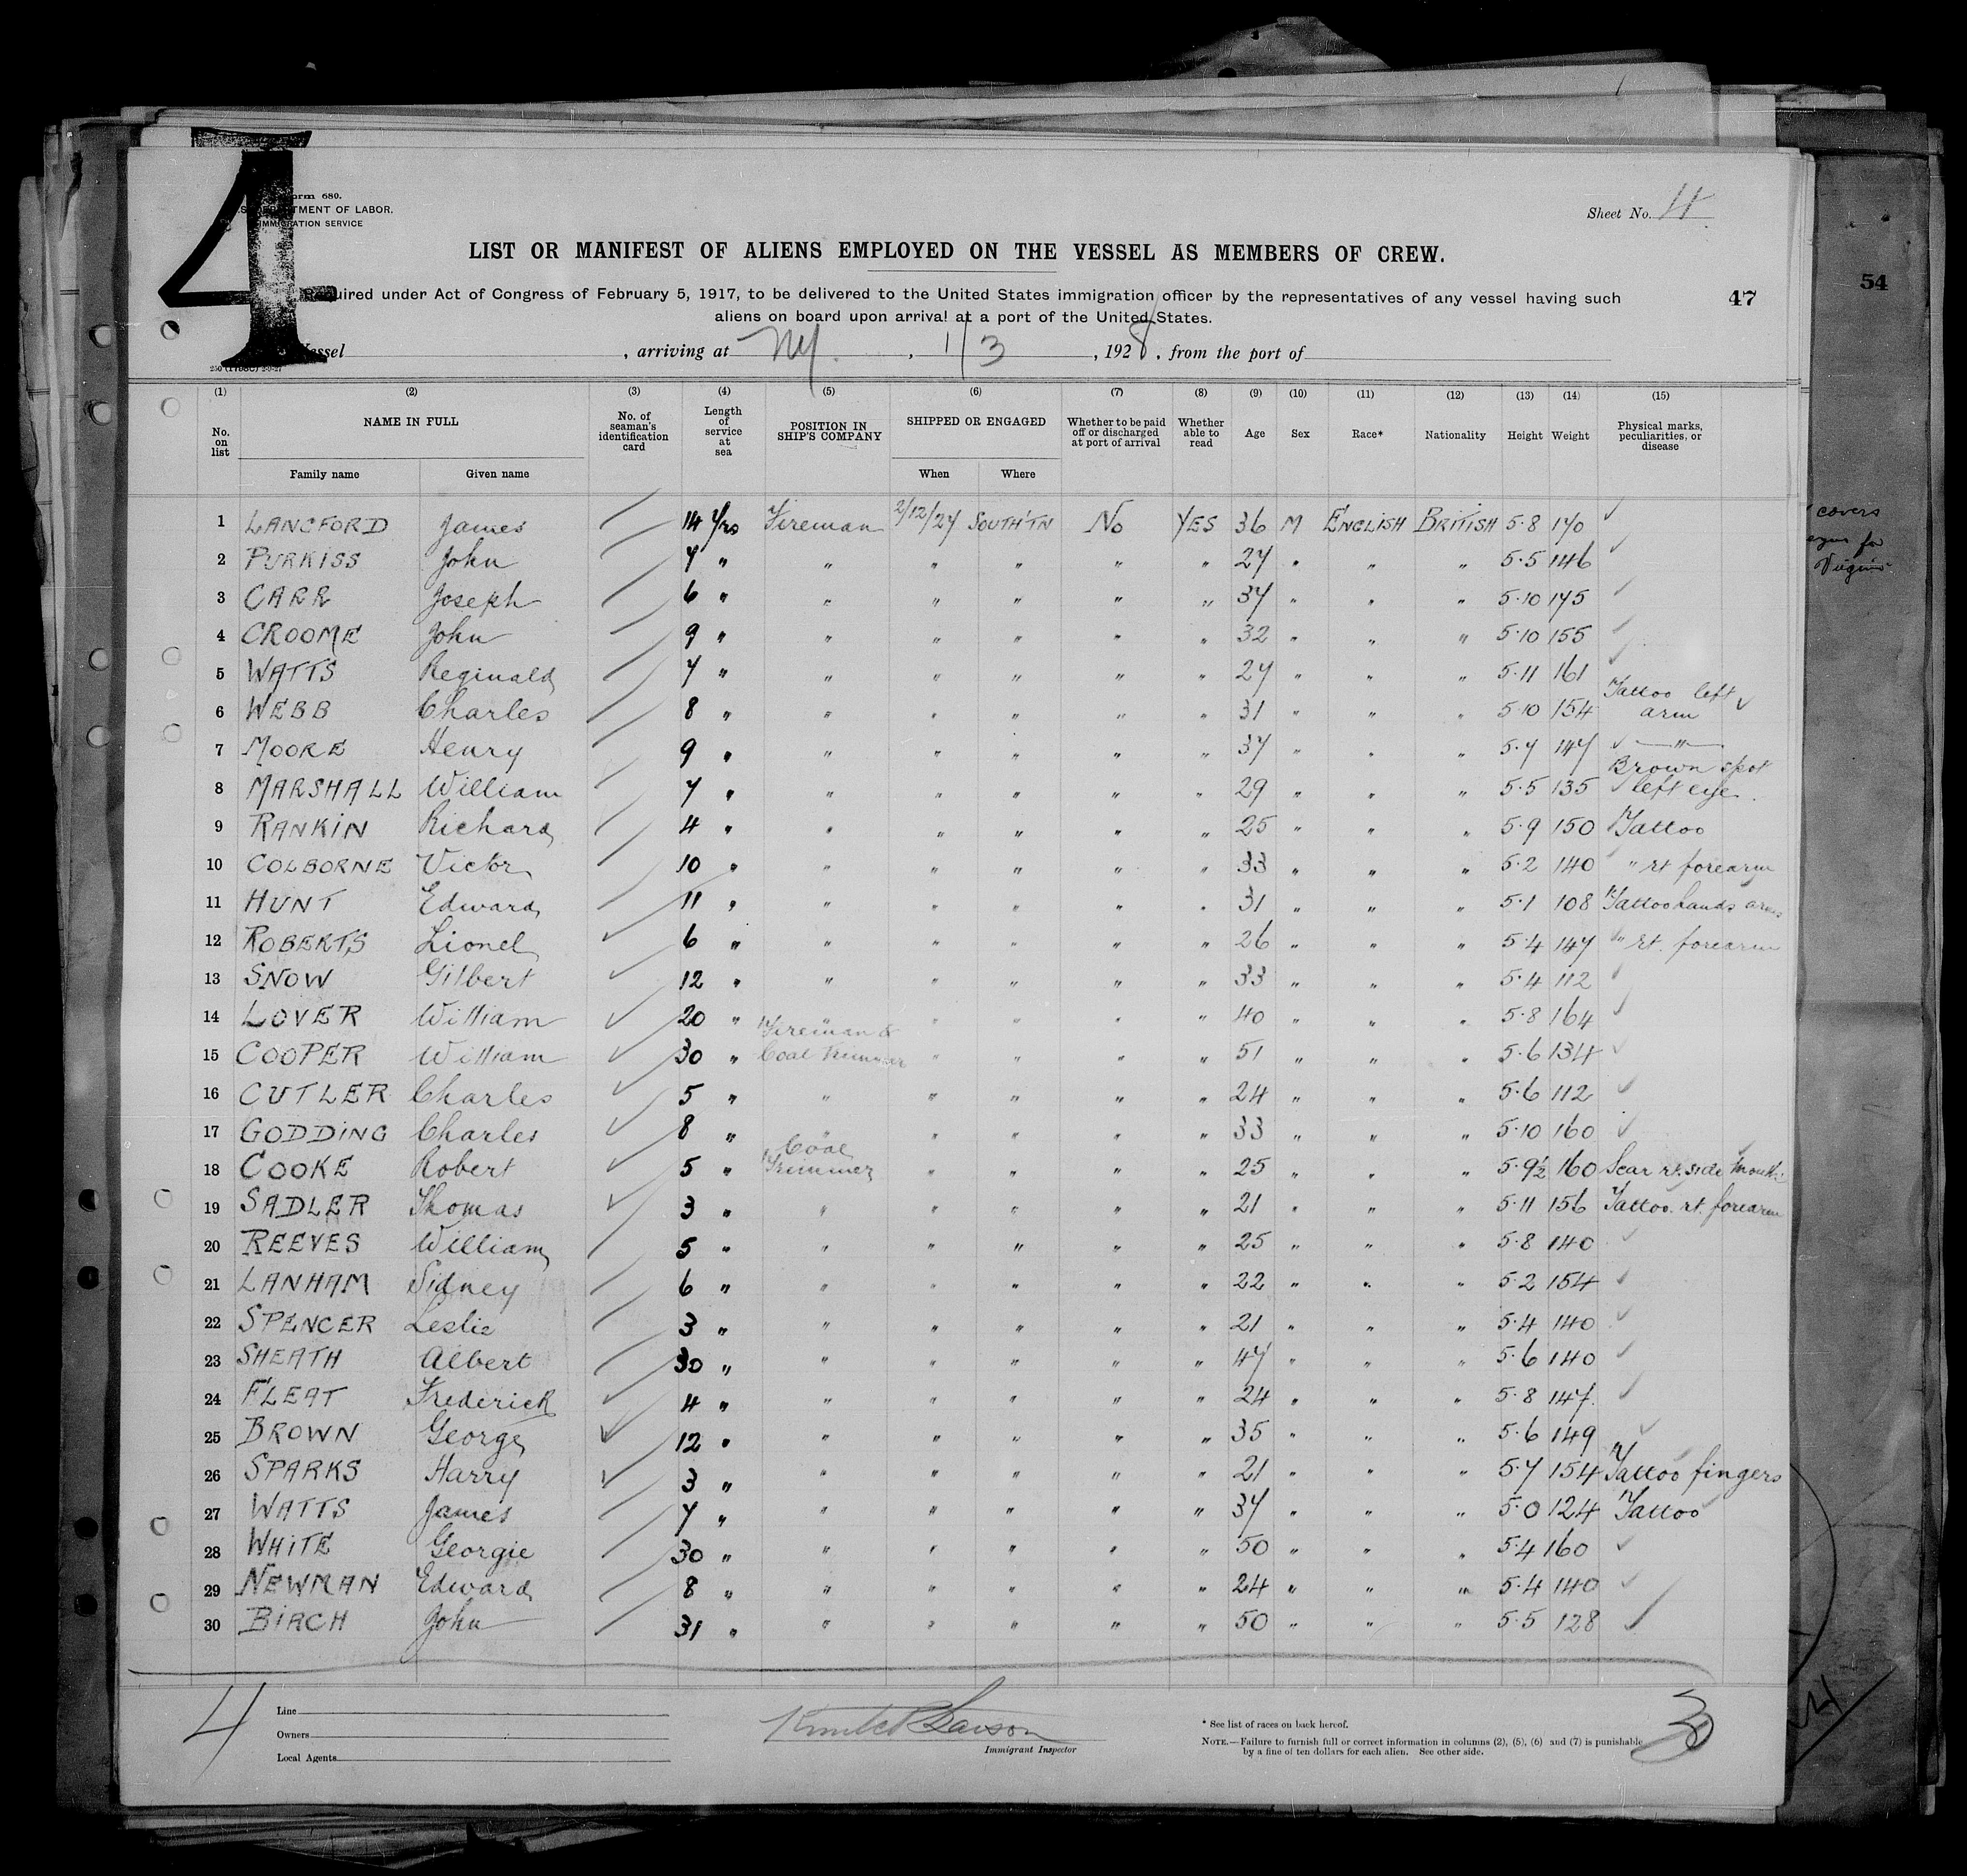 4
Form 680.
U.S. DEPARTMENT OF LABOR.
IMMIGRATION SERVICE
Sheet No. 4
LIST OR MANIFEST OF ALIENS EMPLOYED ON THE VESSEL AS MEMBERS OF CREW.
Required under Act of Congress of February 5, 1917, to be delivered to the United States immigration officer by the representatives of any vessel having such
aliens on board upon arrival at a port of the United States.
47
54
Vessel , arriving at NY. , 1/3 , 1928 , from the port of
(1) (2) (3) (4) (5) (6) (7) (8) (9) (10) (11) (12) (13) (14) (15)
No. on list NAME IN FULL Family name Given name No. of seaman's identification card Length of service at sea POSITION IN SHIP'S COMPANY SHIPPED OR ENGAGED When Where Whether to be paid off or discharged at port of arrival Whether able to read Age Sex Race* Nationality Height Weight Physical marks, peculiarities, or disease
1 LANGFORD James 14 Yrs Fireman 2/12/27 SOUTH'TN No YES 36 M ENGLISH BRITISH 5·8 170
2 PURKISS John 7 " " " " " " 27 " " " 5·5 146
3 CARR Joseph 6 " " " " " " 37 " " " 5·10 175
4 CROOME John 9 " " " " " " 32 " " " 5·10 155
5 WATTS Reginald 7 " " " " " " 27 " " " 5·11 161
6 WEBB Charles 8 " " " " " " 31 " " " 5·10 154 Tattoo left arm
7 MOORE Henry 9 " " " " " " 37 " " " 5·7 147 "
8 MARSHALL William 7 " " " " " " 29 " " " 5·5 135 Brown spot left eye.
9 RANKIN Richard 4 " " " " " " 25 " " " 5·9 150 Tattoo
10 COLBORNE Victor 10 " " " " " " 33 " " " 5·2 140 " rt forearm
11 HUNT Edward 11 " " " " " " 31 " " " 5·1 108 Tattoo hands arms
12 ROBERTS Lionel 6 " " " " " " 26 " " " 5·4 147 " rt. forearm
13 SNOW Gilbert 12 " " " " " " 33 " " " 5·4 112
14 LOVER William 20 " " " " " " 40 " " " 5·8 164
15 COOPER William 30 " Fireman & Coal Trimmer " " " " 51 " " " 5·6 134
16 CUTLER Charles 5 " " " " " " 24 " " " 5·6 112
17 GODDING Charles 8 " " " " " " 33 " " " 5·10 160
18 COOKE Robert 5 " Coal Trimmer " " " " 25 " " " 5·9½ 160 Scar rt. side mouth
19 SADLER Thomas 3 " " " " " " 21 " " " 5·11 156 Tattoo. rt. forearm
20 REEVES William 5 " " " " " " 25 " " " 5·8 140
21 LANHAM Sidney 6 " " " " " " 22 " " " 5·2 154
22 SPENCER Leslie 3 " " " " " " 21 " " " 5·4 140
23 SHEATH Albert 30 " " " " " " 47 " " " 5·6 140
24 FLEAT Frederick 4 " " " " " " 24 " " " 5·8 147.
25 BROWN George 12 " " " " " " 35 " " " 5·6 149
26 SPARKS Harry 3 " " " " " " 21 " " " 5·7 154 Tattoo fingers
27 WATTS James 7 " " " " " " 37 " " " 5·0 124 Tattoo
28 WHITE Georgie 30 " " " " " " 50 " " " 5·4 160
29 NEWMAN Edward 8 " " " " " " 24 " " " 5·4 140
30 BIRCH John 31 " " " " " " 50 " " " 5·5 128
covers
for
Virginia
4
Line
Owners
Local Agents
Immigrant Inspector
* See list of races on back hereof.
NOTE.—Failure to furnish full or correct information in columns (2), (5), (6) and (7) is punishable
by a fine of ten dollars for each alien. See other side.
30